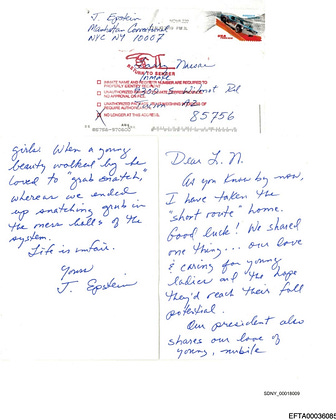 J. Epstein
Manhattan Correctional
NYC NY 10007
Larry Nassar
Inmate
RETURN TO SENDER
INMATE NAME AND REGISTER NUMBER ARE REQUIRED TO
PROPERLY IDENTIFY RECIPIENT
9300 S Wilmot Rd
UNAUTHORIZED
Tucson AZ
NO LONGER AT THIS ADDRESS.
85756
Dear L.N.
As you know by now,
I have taken the
"short route" home.
Good luck! We shared
one thing... our love
& caring for young
ladies and the hope
they'd reach their full
potential.
Our president also
shares our love of
young, nubile
girls. When a young
beauty walked by he
loved to "grab snatch,"
whereas we ended
up snatching grub in
the mess halls of the
system.
Life is unfair.
Yours
J. Epstein
SDNY_00018009
EFTA00036085